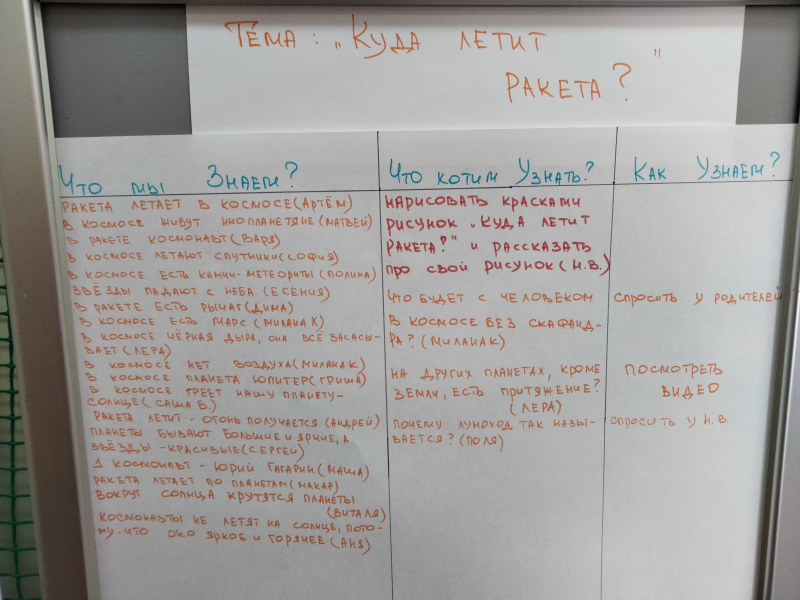 Тема: „Куда летит
ракета?"
Что мы знаем?
Ракета летает в космосе(Артём)
В космосе живут инопланетяне(Матвей)
В ракете космонавт(Варя)
В космосе летают спутники(София)
В космосе есть камни-метеориты(Полина)
Звёзды падают с неба(Есения)
В ракете есть рычаг(Дима)
В космосе есть Марс(Милана Х)
В космосе чёрная дыра, она всё засасы-
вает(Лера)
В космосе нет воздуха(Милана К)
В космосе планета Юпитер(Гриша)
В космосе греет нашу планету-
солнце(Саша Б.)
Ракета летит - огонь получается(Андрей)
Планеты бывают большие и яркие, а
звёзды - красивые(Сергей)
1 космонавт - Юрий Гагарин(Маша)
Ракета летает по планетам(Макар)
Вокруг солнца крутятся планеты
(Виталя)
Космонавты не летят на солнце, пото-
му-что оно яркое и горячее(Аня)
Что хотим узнать?
Нарисовать красками
рисунок „Куда летит
ракета?" и рассказать
про свой рисунок(Н.В.)
Что будет с человеком
в космосе без скафанд-
ра?(Милана К)
На других планетах, кроме
земли, есть притяжение?
(Лера)
Почему луноход так назы-
вается?(Поля)
Как узнаем?
Спросить у родителей
Посмотреть
видео
Спросить у Н.В.